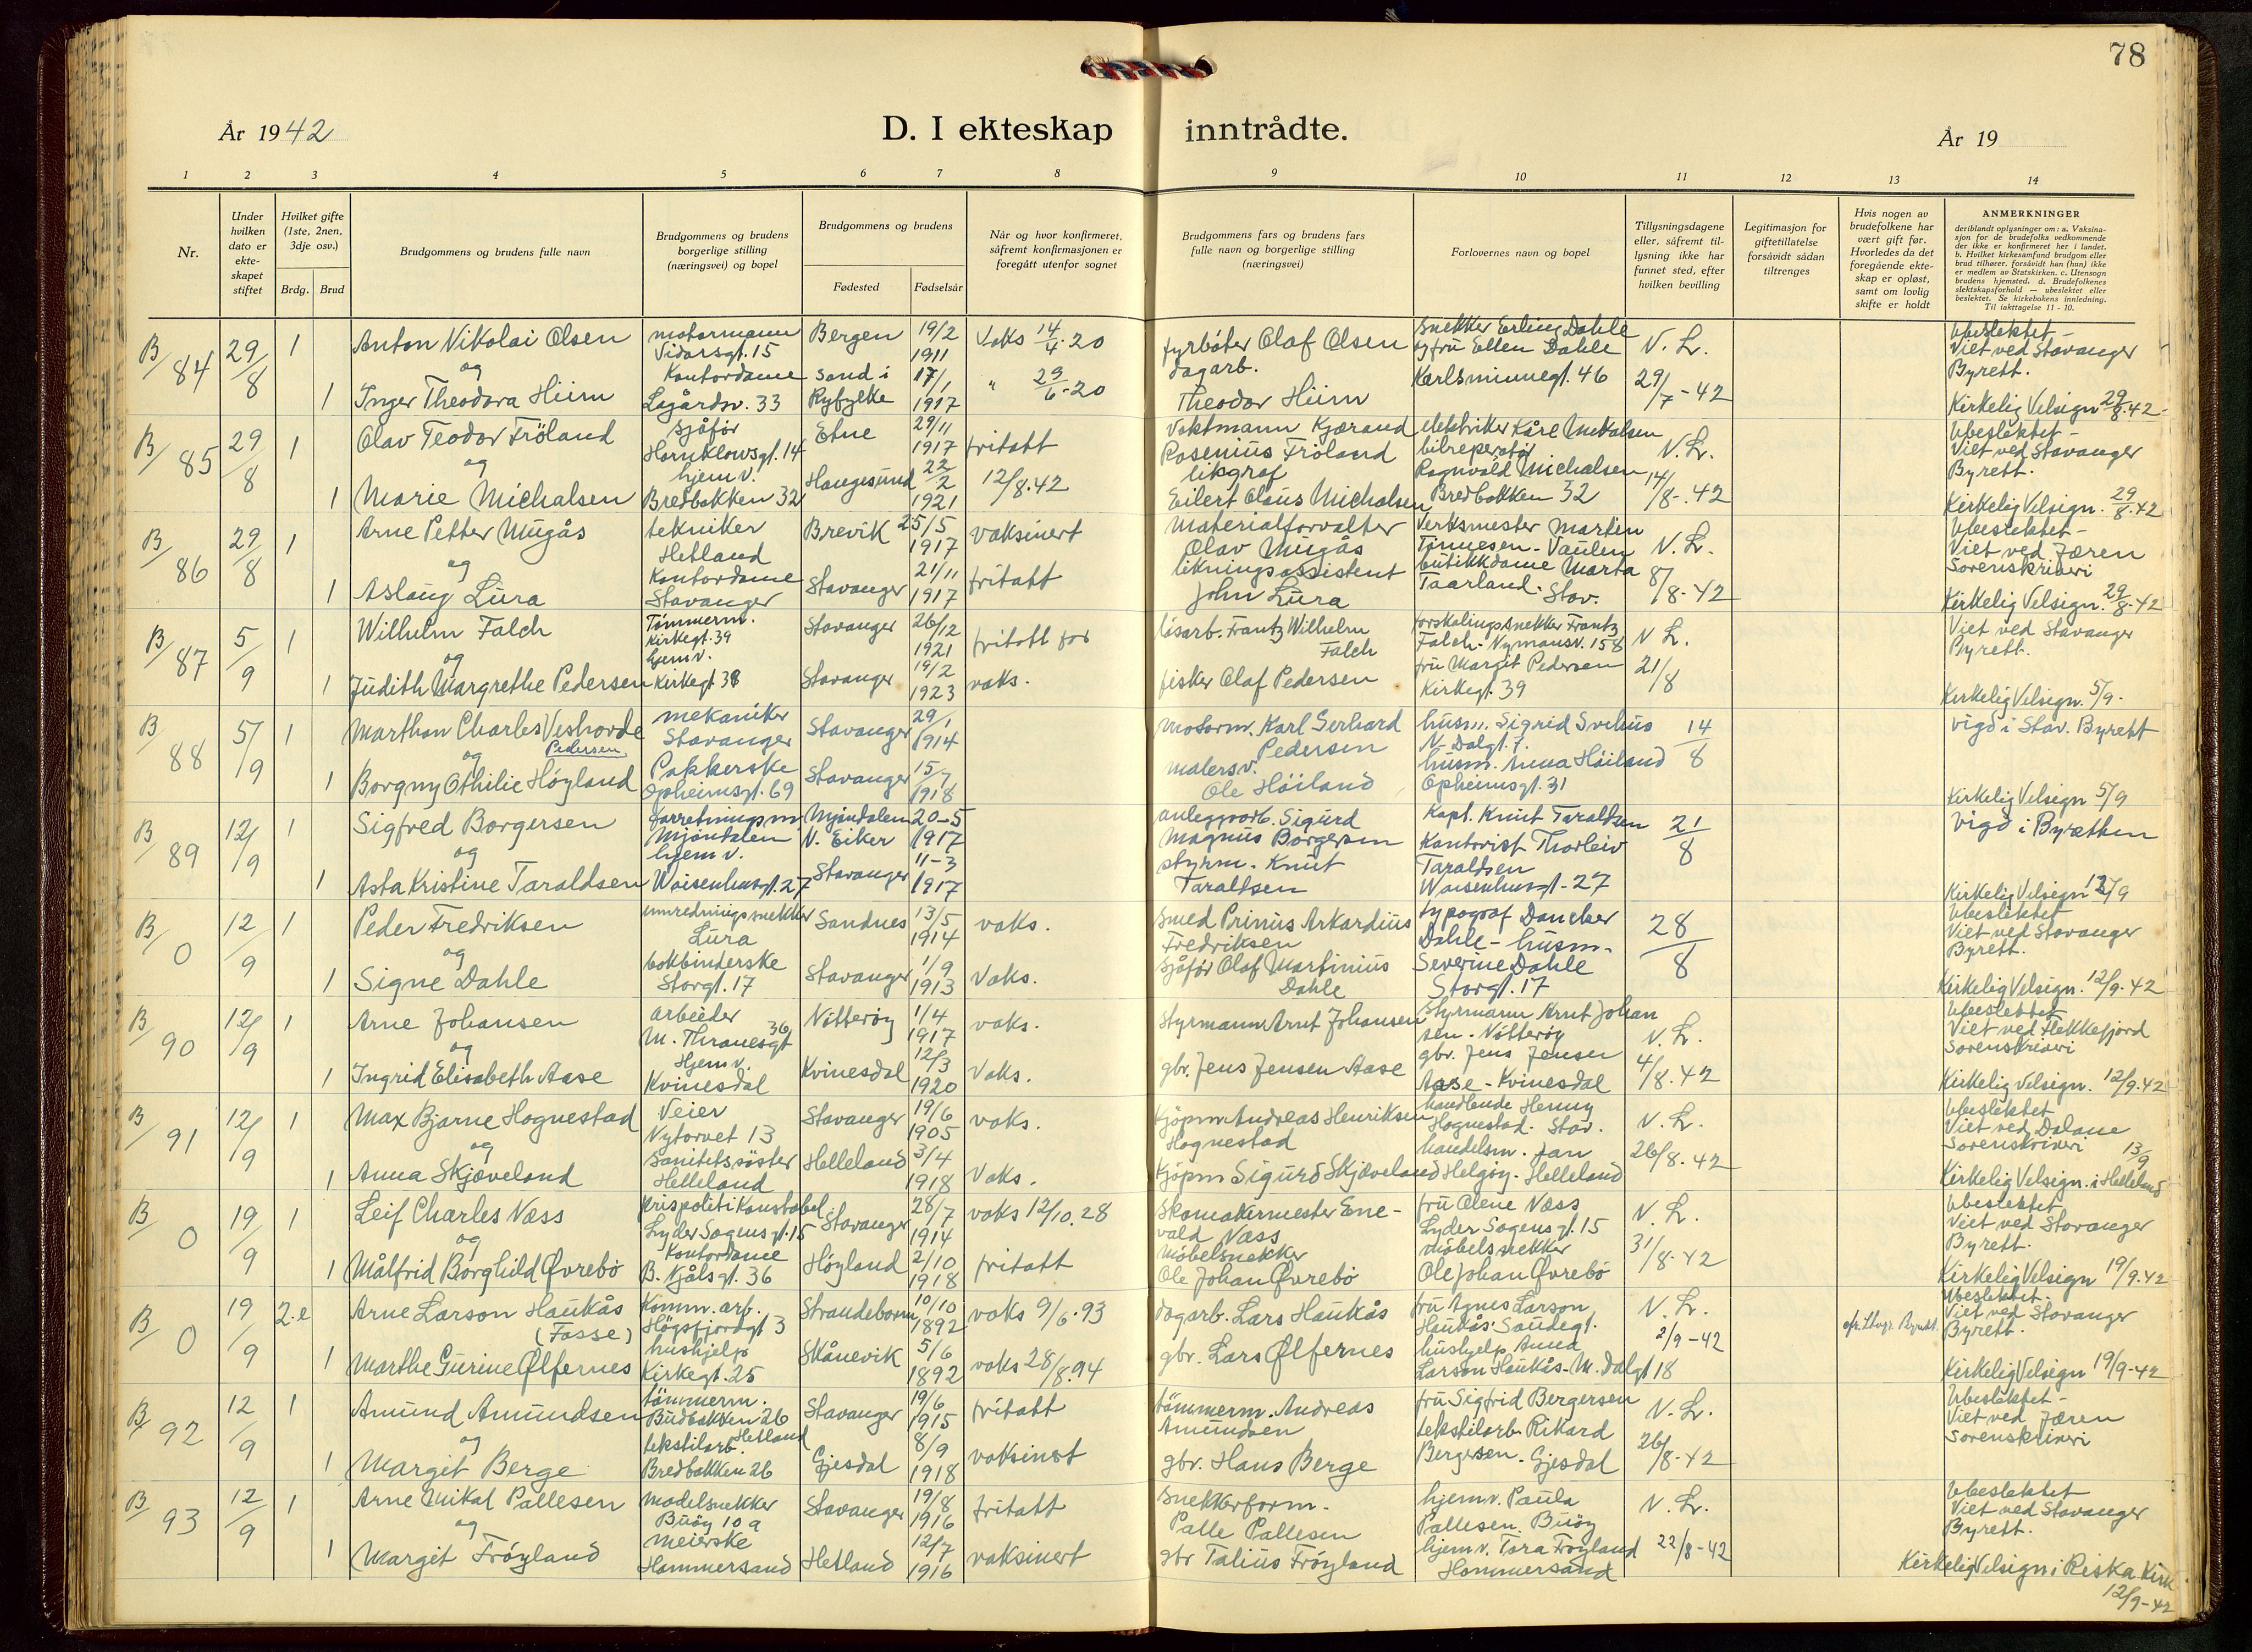 78
År 1942
D. I ekteskap inntrådte.
År 19
1 2 3 4 5 6 7 8 9 10 11 12 13 14
Nr.
Under hvilken dato er ekteskapet stiftet
Hvilket gifte (1ste, 2nen, 3dje osv.)
Brdg. Brud
Brudgommens og brudens fulle navn
Brudgommens og brudens borgerlige stilling (næringsvei) og bopel
Brudgommens og brudens
Fødested Fødselsår
Når og hvor konfirmeret, såfremt konfirmasjonen er foregått utenfor sognet
Brudgommens fars og brudens fars fulle navn og borgerlige stilling (næringsvei)
Forlovernes navn og bopel
Tillysningsdagene eller, såfremt tillysning ikke har funnet sted, efter hvilken bevilling
Legitimasjon for giftetillatelse forsåvidt sådan tiltrenges
Hvis nogen av brudefolkene har vært gift før. Hvorledes da det foregående ekteskap er opløst, samt om lovlig skifte er holdt
ANMERKNINGER
deriblandt oplysninger om: a. Vaksinasjon for de brudefolks vedkommende der ikke er konfirmeret her i landet. b. Hvilket kirkesamfund brudgom eller brud tilhører, forsåvidt han (hun) ikke er medlem av Statskirken. c. Utensogn brudens hjemsted. d. Brudefolkenes slektskapsforhold — ubeslektet eller beslektet. Se kirkebokens innledning. Til iakttagelse 11 - 10.
B/84 29/8 1 Anton Nikolai Olsen motormann Vidarsgt. 15 Bergen 19/2 1911 Vaks 14/4.20 fyrbøter Olaf Olsen dagarb. snekker Erling Dahle og fru Ellen Dahle Karlsminnegt. 46 N. L. 29/7-42 Ubeslektet - Viet ved Stavanger Byrett.
og
1 Inger Theodora Hiim Kontordame Lagårdsv. 33 Sand i Ryfylke 17/1 1917 " 29/6.20 Theodor Hiim Kirkelig Velsign 29/8.42
B/85 29/8 1 Olav Teodor Fröland sjåför Hornklovsgt. 14 Etne 29/11 1917 fritatt Vaktmann Kjærand Rosenius Fröland elektriker Kåre Michalsen bilreperatör Ragnvald Michalsen Bredbakken 32 N. L. 14/8-.42 Ubeslektet - Viet ved Stavanger Byrett.
og
1 Marie Michalsen hjem v. Bredbakken 32 Haugesund 22/2 1921 12/8.42 likgraf Eilert Claus Michalsen Kirkelig Velsign. 29/8.42
B/86 29/8 1 Arne Petter Mugås tekniker Hetland Brevik 25/5 1917 vaksinert Materialforvalter Olav Mugås Verksmester Martin Tönnesen - Vaulen butikkdame Marta Taarland. Stav. N. L. 8/8-42 Ubeslektet - Viet ved Jæren Sorenskriveri
og
1 Aslaug Lura Kontordame Stavanger Stavanger 21/11 1917 fritatt likningsassistent John Lura Kirkelig Velsign. 29/8.42
B/87 5/9 1 Wilhelm Falch Tömmerm. Kirkegt. 39 Stavanger 26/12 1921 fritatt for lösarb. Frantz Wilhelm Falch forskalingssnekker Frantz Falch - Nymansv. 158 fru Margit Pedersen Kirkegt. 39 N L. 21/8 Viet ved Stavanger Byrett.
og
1 Judith Margrethe Pedersen hjem v. Kirkegt 38 Stavanger 19/2 1923 vaks. fisker Olaf Pedersen Kirkelig Velsign. 5/9.
B/88 5/9 1 Marthon Charles Vesthorde Pedersen mekaniker Stavanger Stavanger 29/1 1914 motorm. Karl Gerhard Pedersen husm. Sigrid Svehus N. Dalgt. 7. husm. Anna Höiland Opheimsgt. 31 14/8 vigd i Stav. Byrett
og
1 Borgny Othilie Höyland Pakkerske Opheimsgt. 69 Stavanger 15/7 1918 malersv. Ole Höiland Kirkelig Velsign 5/9
B/89 12/9 1 Sigfred Borgersen forretningsm Mjöndalen Mjöndalen N. Eiker 20-5 1917 anleggsarb. Sigurd Magnus Borgersen Kapt. Knut Taraldsen Kontorist Thorleiv Taraldsen Waisenhusgt-27 21/8 vigd i Byretten
og
1 Asta Kristine Taraldsen hjem v. Waisenhusgt. 27 Stavanger 11-3 1917 styrm. Knut Taraldsen Kirkelig Velsign 12/9
B/0 12/9 1 Peder Fredriksen innredningssnekker Lura Sandnes 13/5 1914 vaks. Smed Prinus Arkardius Fredriksen typograf Doncker Dahle - husm. Severine Dahle Storgt. 17 28/8 Ubeslektet Viet ved Stavanger Byrett.
og
1 Signe Dahle bokbinderske Storgt. 17 Stavanger 1/9 1913 Vaks. Sjåför Olaf Martinius Dahle Kirkelig Velsign. 12/9.42
B/90 12/9 1 Arne Johansen arbeider M. Thranesgt 36 Nötteröy 1/4 1917 vaks. Styrmann Arnt Johansen Styrmann Arnt Johansen - Nötteröy gbr. Jens Jensen Aase - Kvinesdal N. L. 4/8.42 Ubeslektet Viet ved Flekkefjord Sorenskriveri
og
1 Ingrid Elisabeth Aase Hjem v. Kvinesdal Kvinesdal 12/3 1920 Vaks. gbr. Jens Jensen Aase Kirkelig Velsign. 12/9.42
B/91 12/9 1 Max Bjarne Hognestad Veier Nytorvet 13 Stavanger 19/6 1905 vaks. Kjöpm Andreas Henriksen Hognestad handlende Henny Hognestad. Stav. handelsm. Jan Helgöy - Helleland N. L. 26/8.42 Ubeslektet Viet ved Dalane Sorenskriveri
og
1 Anna Skjæveland Sanitetssöster Helleland Helleland 3/4 1918 Vaks. Kjöpm Sigurd Skjæveland Kirkelig Velsign. i Helleland 13/9
B/0 19/9 1 Leif Charles Næss prispolitikonstabel Lyder Sagens gt. 15 Stavanger 28/7 1914 vaks 12/10.28 Skomakermester Enevald Næss fru Olene Næss Lyder Sagens gt. 15 möbelsnekker Ole Johan Øvrebö N. L. 31/8.42 Ubeslektet Viet ved Stavanger Byrett.
og
1 Målfrid Borghild Øvrebö Kontordame B. Njålsgt. 36 Höyland 2/10 1918 fritatt Möbelsnekker Ole Johan Øvrebö Kirkelig Velsign 19/9.42
B/0 19/9 2.e Arne Larson Haukås (Fosse) Komm. arb. Högsfjordgt 3 Strandebarm 10/10 1892 vaks 9/6.93 dagarb. Lars Haukås fru Agnes Larson Haukås. Saudegt. hushjelp Anna Larson Haukås - M. Dalgt 18 N. L. 2/9-42 Ubeslektet. Viet ved Stavanger Byrett.
1 Marthe Gurine Ølfernes hushjelp Kirkegt. 25 Skånevik 5/6 1892 vaks 28/8.94 gbr. Lars Ølfernes Kirkelig Velsign 19/9-42
B/92 12/9 1 Amund Amundsen tömmerm. Budbakken 26 Hetland Stavanger 19/6 1915 fritatt tömmerm. Andreas Amundsen fru Sigfrid Bergersen tekstilarb. Rikard Bergersen. Gjesdal N. L. 26/8-42 Ubeslektet - Viet ved Jæren Sorenskriveri
og
1 Margit Berge tekstilarb. Bredbakken 26 Gjesdal 8/9 1918 vaksinert gbr. Hans Berge
B/93 12/9 1 Arne Mikal Pallesen Modelsnekker Buöy 10 a Stavanger 19/8 1916 fritatt Snekkerform. Palle Pallesen hjemv. Paula Pallesen. Buöy hjem v. Tora Fröyland Hommersand N. L. 22/8-42 Ubeslektet Viet ved Stavanger Byrett.
og
1 Margit Fröyland meierske Hommersand Hetland 12/7 1916 vaksinert gbr Talius Fröyland Kirkelig Velsign i Riska Kirk 12/9-42